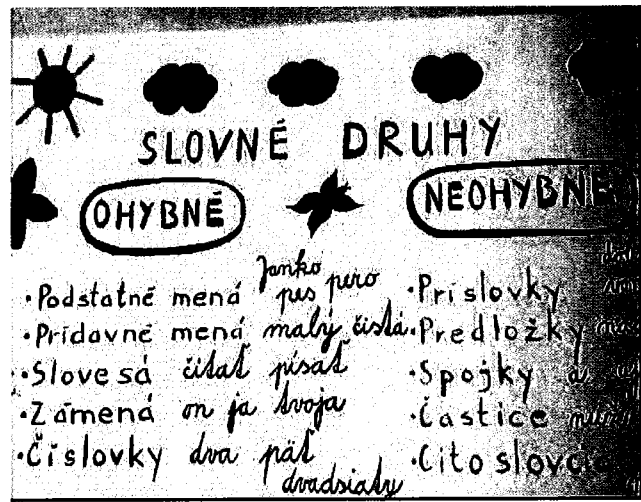 SLOVNÉ DRUHY
OHYBNÉ
NEOHYBNÉ
·Podstatné mená Janko pes pero
·Prídavné mená malý čistá
·Slovesá čítať písať
·Zámená on ja tvoja
·Číslovky dva päť dvadsiaty
·Príslovky
·Predložky
·Spojky a
·Častice
·Citoslovcia